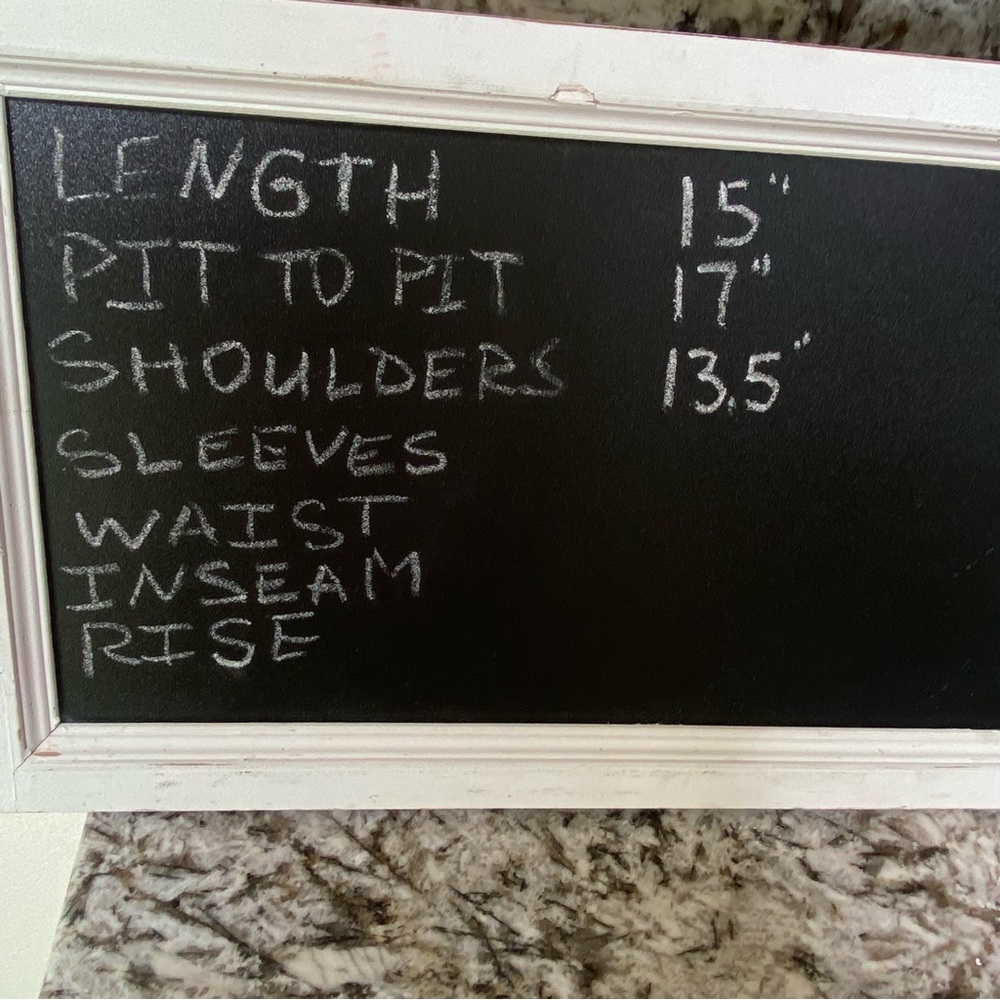 LENGTH 15"
PIT TO PIT 17"
SHOULDERS 13.5"
SLEEVES
WAIST
INSEAM
RISE